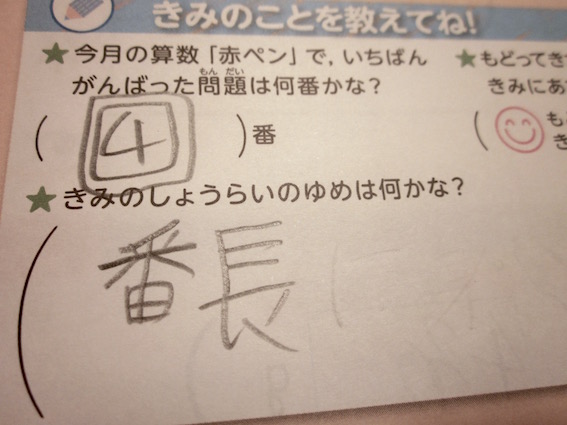 きみのことを教えてね!
★今月の算数「赤ペン」で,いちばん
がんばった問題は何番かな?
もん だい
( 4 )番
★もどってき
きみにあ
( も
き
★きみのしょうらいのゆめは何かな?
( 番長